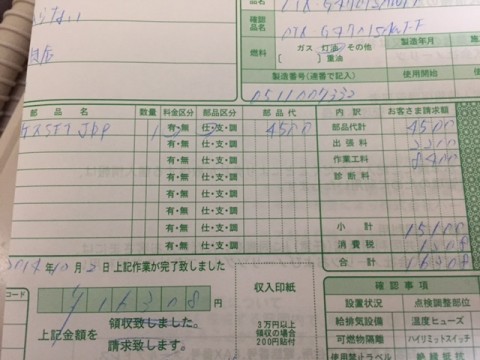 品名
確認品名
燃料 ガス 灯油 その他 [ ]重油
製造年月
製造番号(連番で記入)
使用開始
部品名 数量 料金区分 部品区分 部品代 内訳 お客さま請求額
1 有・無 仕・支・調 4500 部品代計 4500
有・無 仕・支・調 出張料 2200
有・無 仕・支・調 作業工料 8400
有・無 仕・支・調 診断料
有・無 仕・支・調
有・無 仕・支・調
有・無 仕・支・調 小計 15100
有・無 仕・支・調 消費税 1208
2014年10月2日上記作業が完了致しました 合計 16308
コード
¥16308円
上記金額を 領収致しました。
請求致します。
収入印紙
3万円以上
領収の場合
200円貼付
確認事項
設置状況 点検調整部位
給排気設備 温度ヒューズ
可燃物隔離 ハイリミットスイッチ